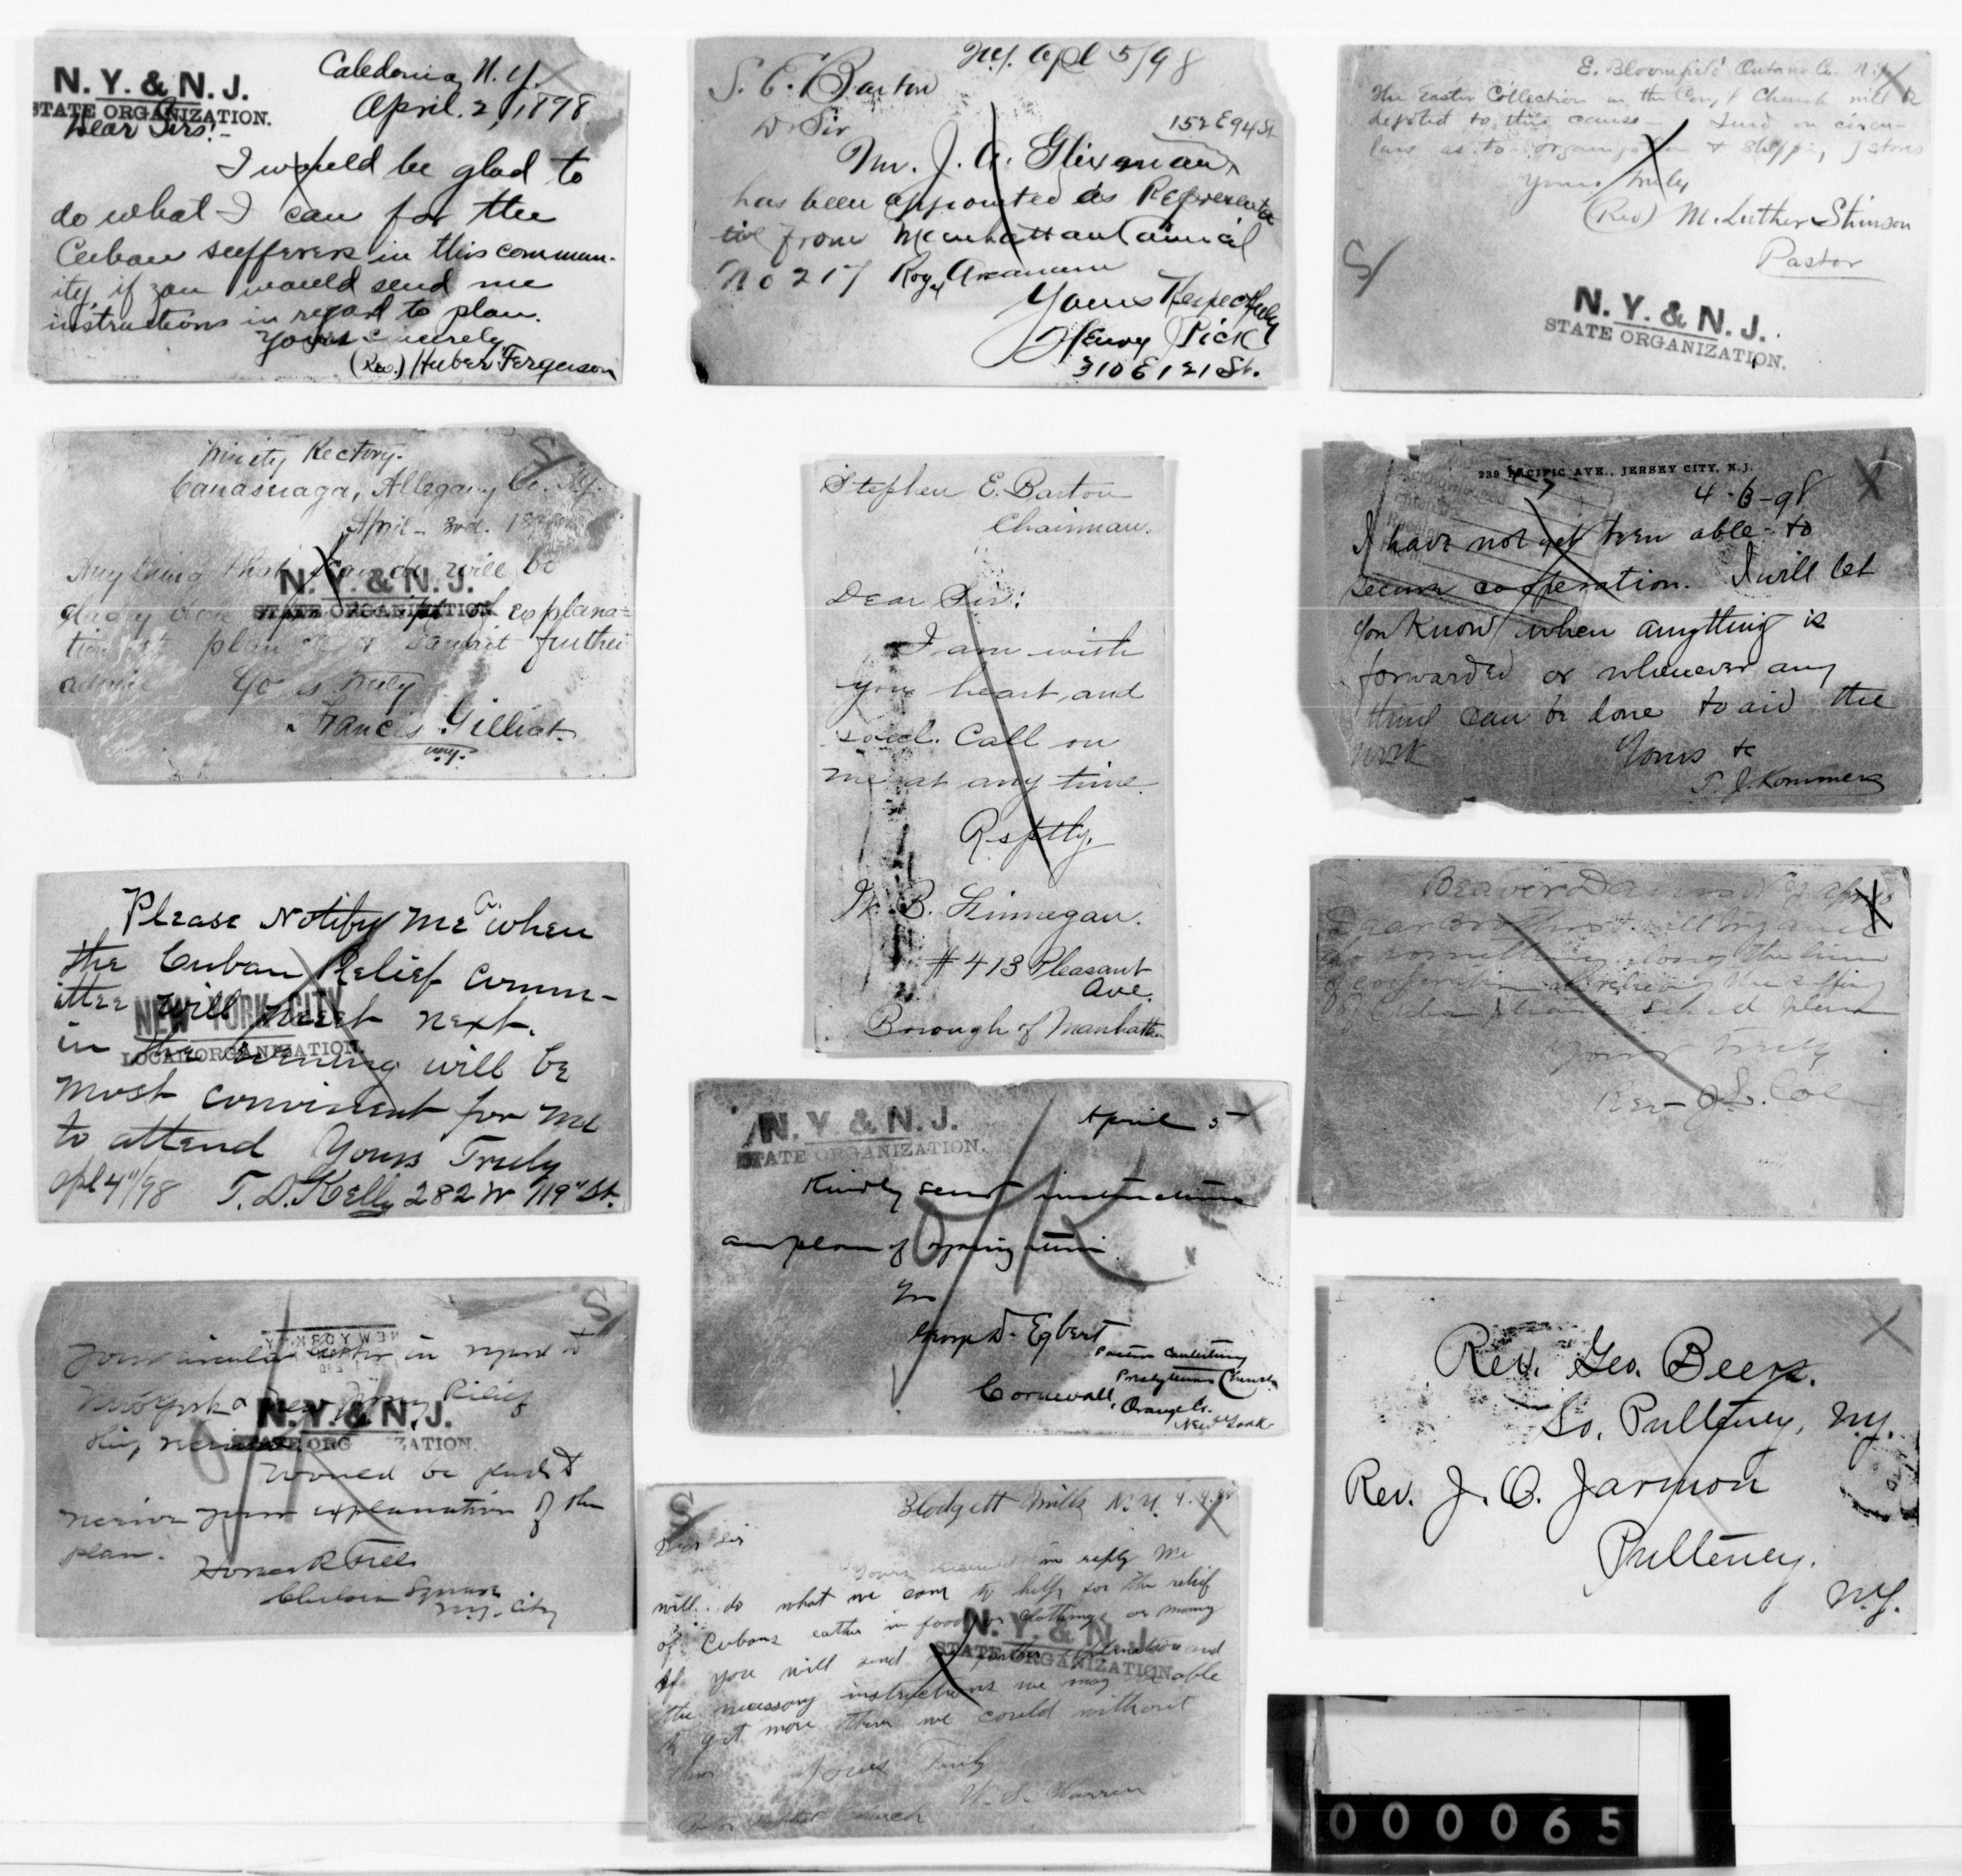 N. Y. & N. J.
STATE ORGANIZATION.
Caledonia, N. Y.
April. 2, 1898.
Dear Sirs:-
I would be glad to
do what I can for the
Cuban sufferers in this commun-
ity, if you would send me
instructions in regard to plan.
Yours sincerely
(Rev.) Huber Ferguson
N.Y. Apl 5/98
S. E. Barton
Dr Sir
152 E 94 St
Mr. J. A.
has been appointed as Representa
tive from Manhattan Council
No 217 Roy. Arcanum
Yours Respectfully
Henry Pick
310 E 121 St.
E. Bloomfield Ontario Co. N.Y.
The Easter Collection in the Cong'l Church will be
devoted to this cause - Send on circu-
lars as to organization & shipping of stores
Yours truly
(Rev) M. Luther Stimson
Pastor
S
N. Y. & N. J.
STATE ORGANIZATION.
Trinity Rectory.
Canaseraga, Allegany Co. N.Y.
April - 3rd.
Anything that I can do will be
N. Y. & N. J.
STATE ORGANIZATION
of explana-
plan & await further
advice Yo s truly
Francis Gilliat.
Stephen E. Barton
Chairman.
Dear Sir:
I am with
you heart and
soul. Call on
me at any time.
Rsptly,
B. Finnegan.
# 413 Pleasant
Ave.
Borough of Manhattan
239 PACIFIC AVE., JERSEY CITY, N. J.
4-6-98
I have not yet been able to
secure cooperation. I will let
you know when anything is
forwarded or whenever any
thing can be done to aid the
work Yours &c
T. J. Kommers
Please Notify Me when
the Cuban Relief Comm-
ittee will meet next.
NEW YORK CITY
LOCAL ORGANIZATION.
in the evening will be
most convinient for me
to attend Yours Truly
Apl 4"/98 T. D. Kelly 282 W 119" St.
Beaver Dams N Y
do something along the line
of relieving the suffering
Yours truly
Rev J. L. Cole
N. Y. & N. J.
STATE ORGANIZATION.
April 5
Kindly send instructions
and plan of organization.
OK
George W. Egbert
Pastor Canterbury
Presbyterian Church
Cornwall, Orange Co.
New York
S
Your circular letter in regard to
New York & New Jersey Relief
N. Y. & N. J.
STATE ORG ZATION.
OK
Would be glad to
receive your explanation of the
plan.
Chelsea Square
N.Y. City
S
Blodgett Mills N. Y. 4.4.98
Dear Sir
Yours received in reply We
will do what we can to help for the relief
of Cubans eather in food or clothings or money
N. Y. & N. J.
STATE ORGANIZATION.
If you will send further explanation and
the necessary instructions we may be able
to get more then we could without
them Yours Truly
W. S. Warren
Baptist Church
Rev. Geo. Beers.
So. Pulteney, N.Y.
Rev. J. O. Jarmon
Pulteney.
N.Y.
000065